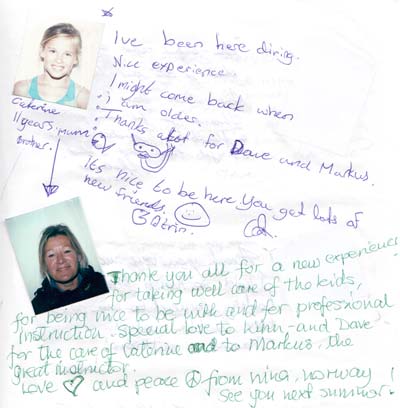 I've been here diving.
Nice experience.
I might come back when
I am older.
Thanks alot for Dave und Markus.
Caterine
11 years. mum
Brother.
Its nice to be here You get lots of
new friends.
Thank you all for a new experience
for taking well care of the kids,
for being nice to be with and for professional
instruction. Special love to and Dave
for the care of Caterine and to Markus, the
great instructor.
Love and peace from nina, norway
See you next summer!